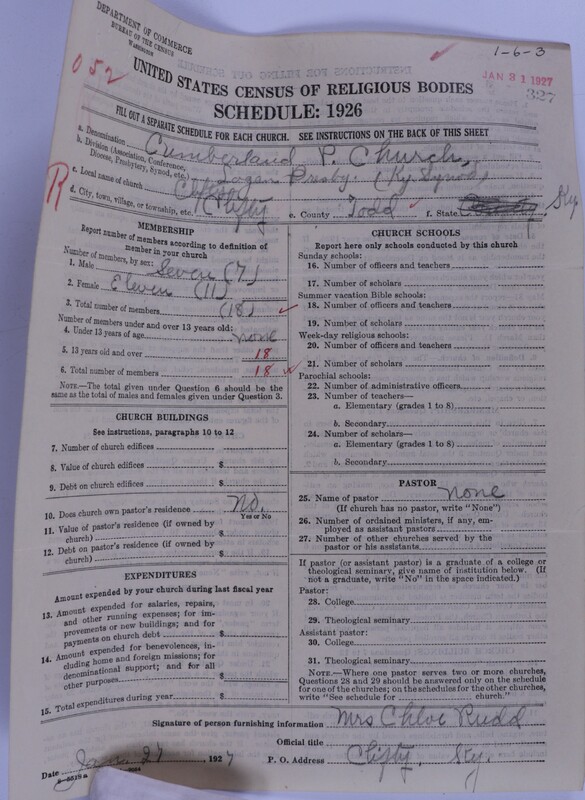 DEPARTMENT OF COMMERCE
BUREAU OF THE CENSUS
WASHINGTON
1-6-3
JAN 31 1927
327
052
UNITED STATES CENSUS OF RELIGIOUS BODIES
SCHEDULE: 1926
FILL OUT A SEPARATE SCHEDULE FOR EACH CHURCH. SEE INSTRUCTIONS ON THE BACK OF THIS SHEET
a. Denomination Cumberland P. Church,
b. Division (Association, Conference, Diocese, Presbytery, Synod, etc.) Logan Presby. (Ky Synod)
c. Local name of church Clifty
R
d. City, town, village, or township, etc. Clifty e. County Todd f. State Ky
MEMBERSHIP
Report number of members according to definition of member in your church
Number of members, by sex:
1. Male Seven (7)
2. Female Eleven (11)
3. Total number of members (18)
Number of members under and over 13 years old:
4. Under 13 years of age none
5. 13 years old and over 18
6. Total number of members 18
NOTE.—The total given under Question 6 should be the same as the total of males and females given under Question 3.
CHURCH BUILDINGS
See instructions, paragraphs 10 to 12
7. Number of church edifices
8. Value of church edifices $
9. Debt on church edifices $
10. Does church own pastor's residence No.
Yes or No
11. Value of pastor's residence (if owned by church) $
12. Debt on pastor's residence (if owned by church) $
EXPENDITURES
Amount expended by your church during last fiscal year
13. Amount expended for salaries, repairs, and other running expenses; for improvements or new buildings; and for payments on church debt $
14. Amount expended for benevolences, including home and foreign missions; for denominational support; and for all other purposes $
15. Total expenditures during year $
CHURCH SCHOOLS
Report here only schools conducted by this church
Sunday schools:
16. Number of officers and teachers
17. Number of scholars
Summer vacation Bible schools:
18. Number of officers and teachers
19. Number of scholars
Week-day religious schools:
20. Number of officers and teachers
21. Number of scholars
Parochial schools:
22. Number of administrative officers
23. Number of teachers—
a. Elementary (grades 1 to 8)
b. Secondary
24. Number of scholars—
a. Elementary (grades 1 to 8)
b. Secondary
PASTOR
25. Name of pastor none
(If church has no pastor, write "None")
26. Number of ordained ministers, if any, employed as assistant pastors
27. Number of other churches served by the pastor or his assistants
If pastor (or assistant pastor) is a graduate of a college or theological seminary, give name of institution below. (If not a graduate, write "No" in the space indicated.)
Pastor:
28. College
29. Theological seminary
Assistant pastor:
30. College
31. Theological seminary
NOTE.—Where one pastor serves two or more churches, Questions 28 and 29 should be answered only on the schedule for one of the churches; on the schedules for the other churches, write "See schedule for church."
Signature of person furnishing information Mrs Chloe Rudd
Official title
Date Jan. 27 1927 P. O. Address Clifty, Ky.